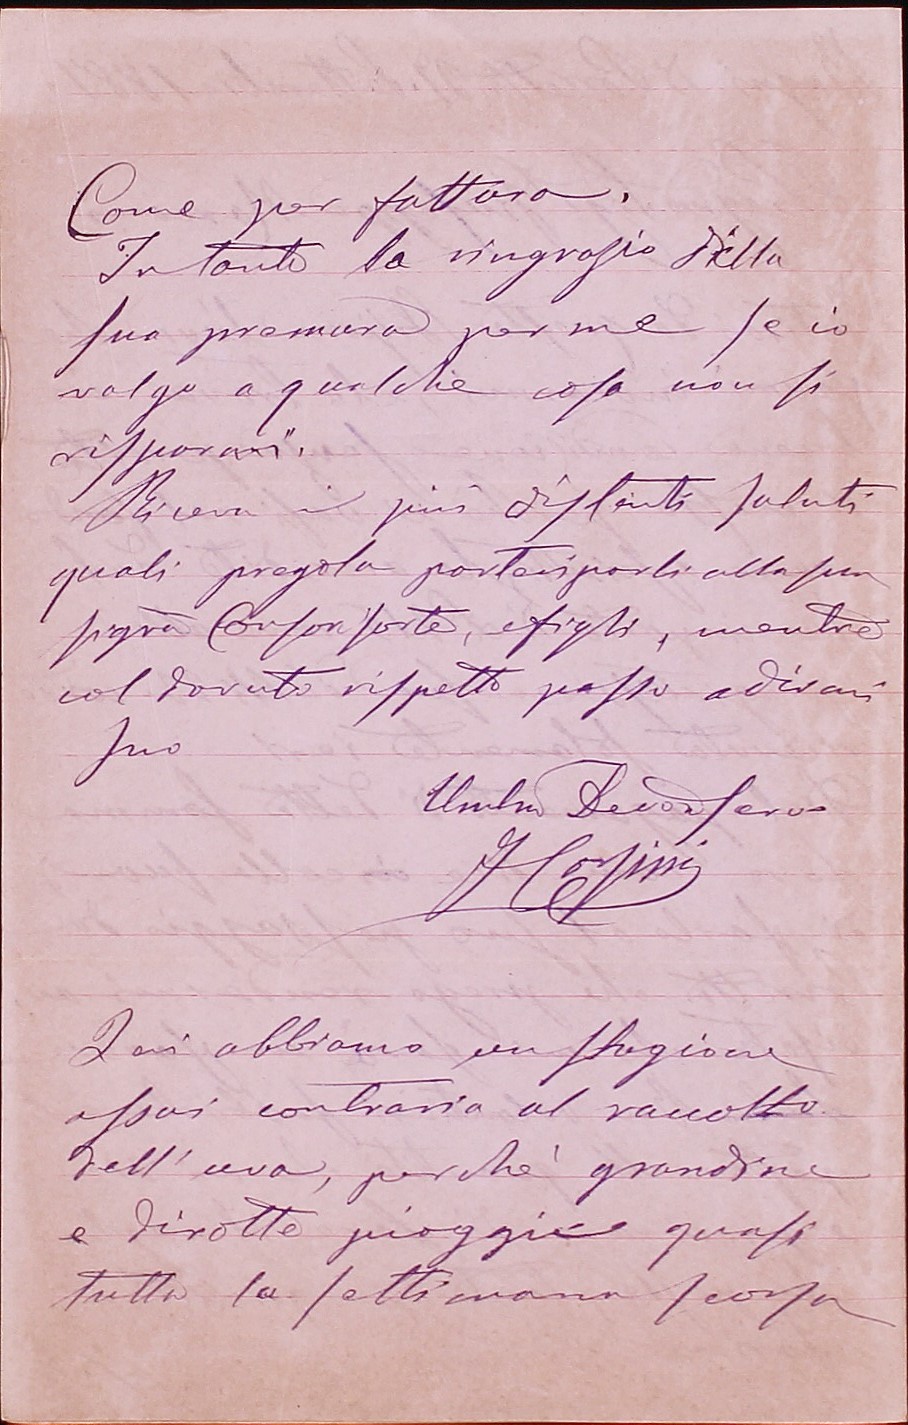 Come per fattura.
Intanto la ringrazio della
sua premura per me se io
valgo a qualche cosa non si
risparmi.
Riceva i più distinti saluti
quali pregola parteciparli alla sua
sigra Consorte, e figli, mentre
col dovuto rispetto passo a dirmi
suo
Umilmo Devmo servo
J Corsini
Qui abbiamo un stagione
assai contraria al raccolto
dell'uva, perchè grandine
e dirotte pioggie quasi
tutta la settimana scorsa